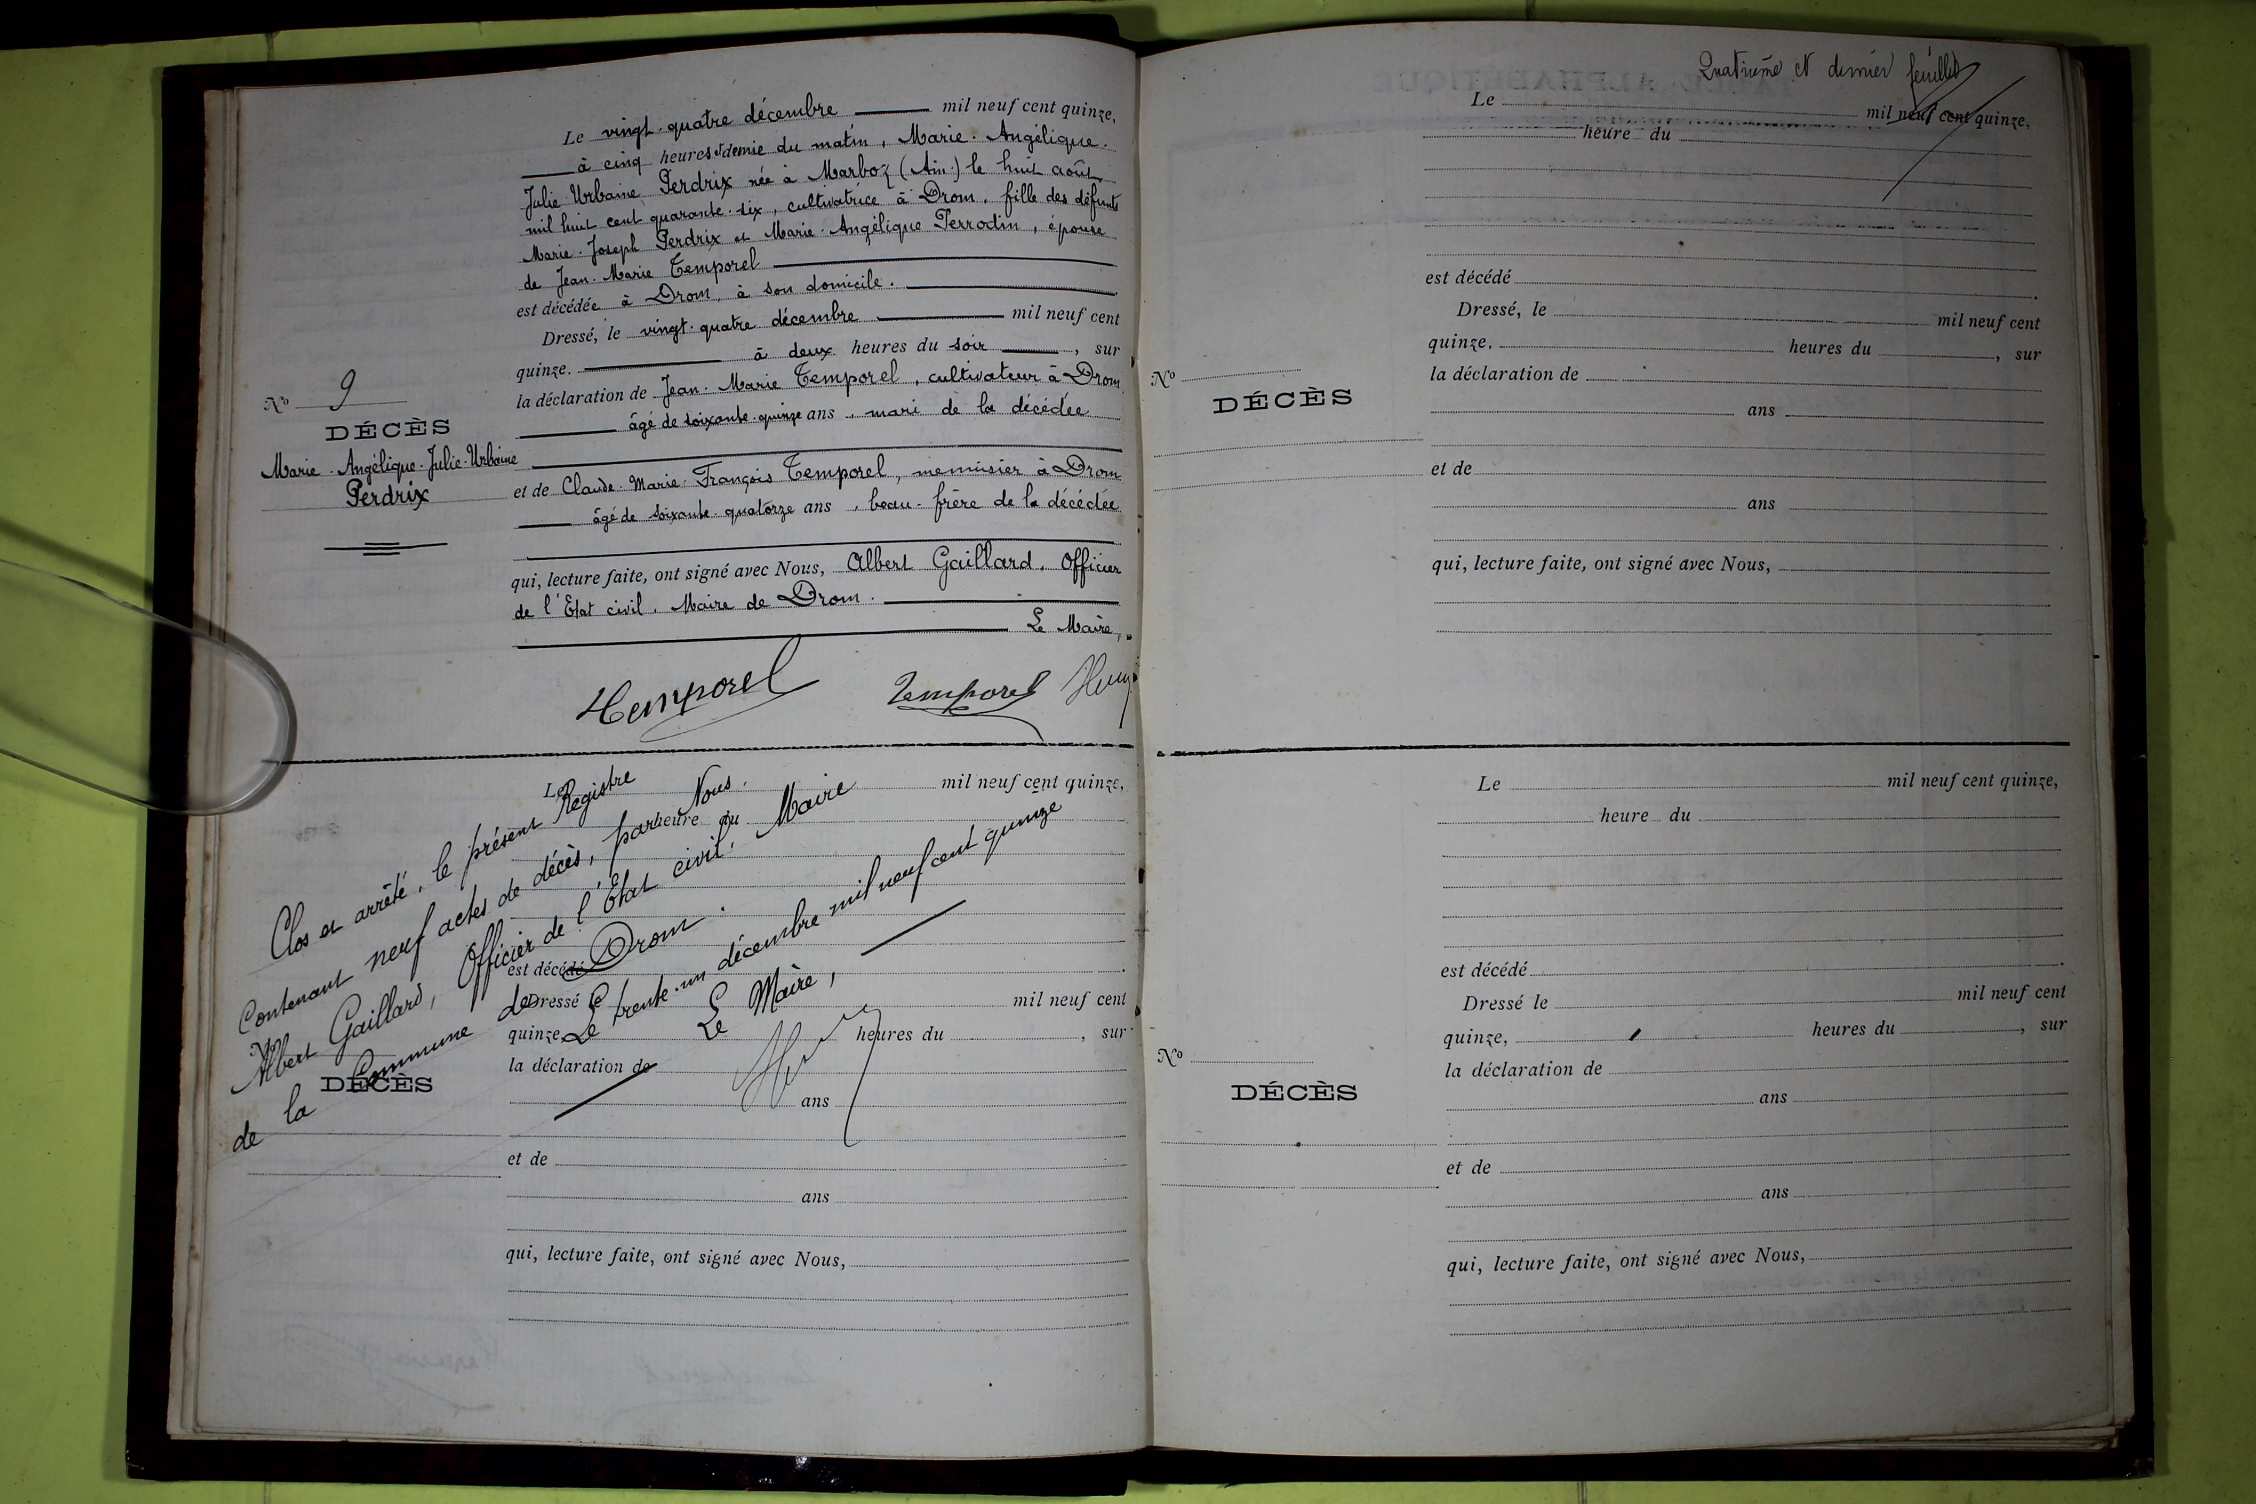 Le vingt-quatre décembre mil neuf cent quinze,
à cinq heures et demie du matin, Marie-Angélique-
Julie Urbaine Perdrix née à Marboz (Ain) le huit août
mil huit cent quarante-six, cultivatrice à Drom, fille des défunts
Marie-Joseph Perdrix et Marie-Angélique Perrodin, épouse
de Jean-Marie Temporel
est décédée à Drom, à son domicile.
Dressé, le vingt-quatre décembre mil neuf cent
quinze. à deux heures du soir, sur
la déclaration de Jean-Marie Temporel, cultivateur à Drom
âgé de soixante-quinze ans, mari de la décédée
et de Claude-Marie-François Temporel, menuisier à Drom
âgé de soixante-quatorze ans, beau-frère de la décédée
qui, lecture faite, ont signé avec Nous, Albert Gaillard, Officier
de l'Etat civil, Maire de Drom.
Le Maire,
Temporel Temporel
No 9
DÉCÈS
Marie-Angélique-Julie-Urbaine
Perdrix
Le mil neuf cent quinze,
heure du
est décédé
Dressé le mil neuf cent
quinze, heures du , sur
la déclaration de
ans
et de
ans
qui, lecture faite, ont signé avec Nous,
No
DÉCÈS
Clos et arrêté, le présent Registre
Contenant neuf actes de décès, par Nous.
Albert Gaillard, Officier de l'Etat civil, Maire
de la Commune de Drom.
Le trente-un décembre mil neuf cent quinze
Le Maire,
Quatrième et dernier feuillet
Le mil neuf cent quinze,
heure du
est décédé
Dressé, le mil neuf cent
quinze, heures du , sur
la déclaration de
ans
et de
ans
qui, lecture faite, ont signé avec Nous,
No
DÉCÈS
Le mil neuf cent quinze,
heure du
est décédé
Dressé le mil neuf cent
quinze, heures du , sur
la déclaration de
ans
et de
ans
qui, lecture faite, ont signé avec Nous,
No
DÉCÈS